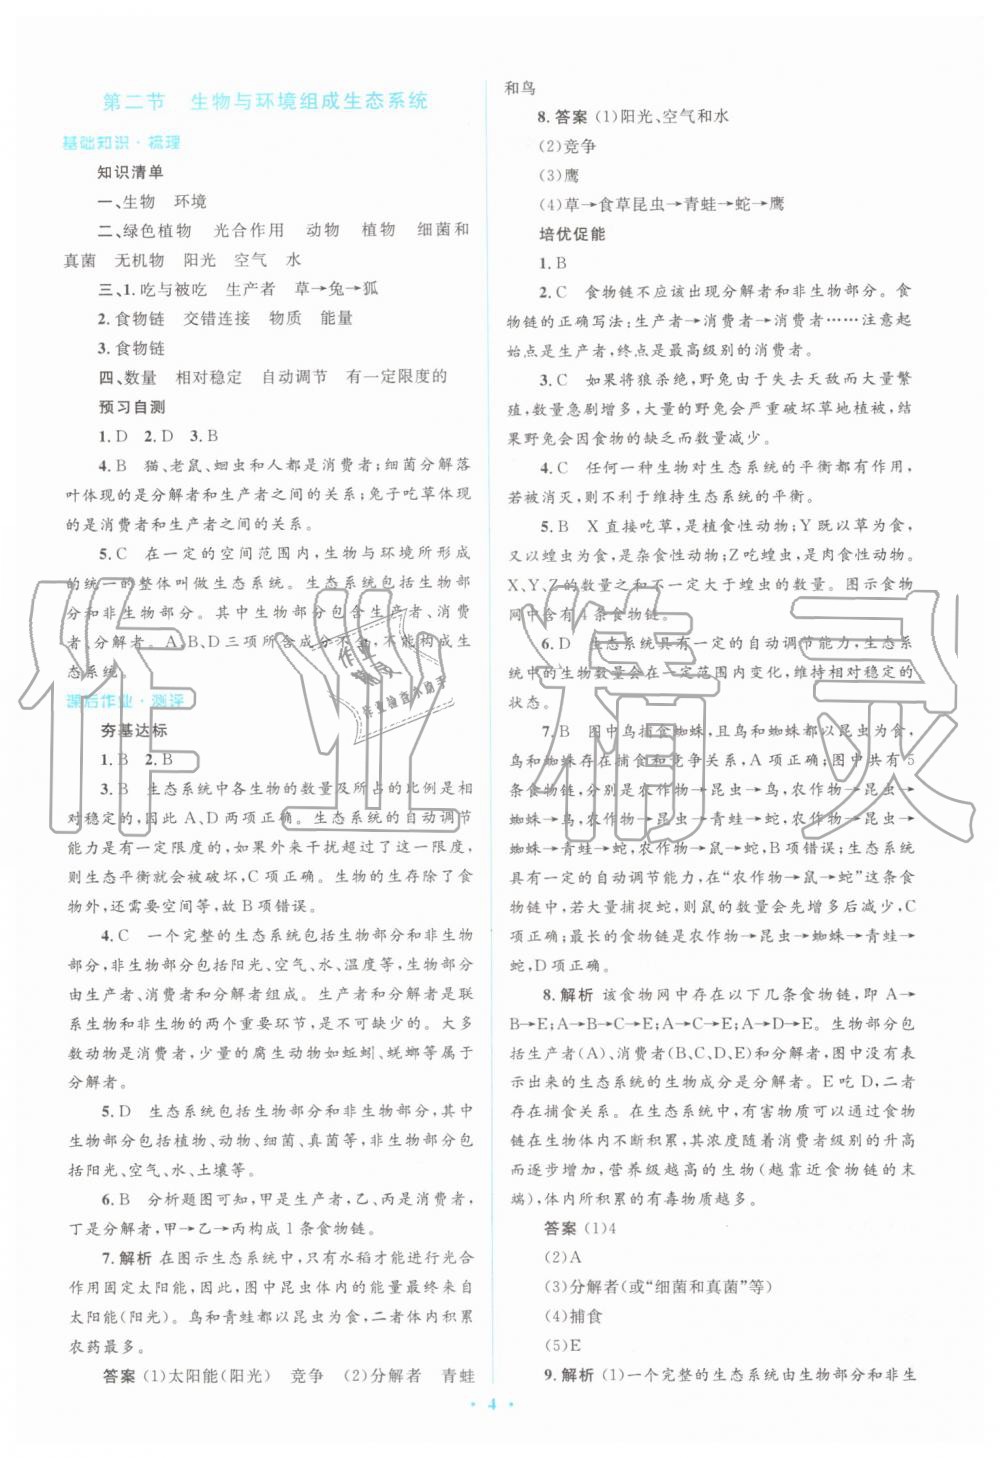 第二节 生物与环境组成生态系统
基础知识·梳理
知识清单
一、生物 环境
二、绿色植物 光合作用 动物 植物 细菌和
真菌 无机物 阳光 空气 水
三、1.吃与被吃 生产者 草→兔→狐
2.食物链 交错连接 物质 能量
3.食物链
四、数量 相对稳定 自动调节 有一定限度的
预习自测
1.D 2.D 3.B
4.B 猫、老鼠、蛔虫和人都是消费者;细菌分解落
叶体现的是分解者和生产者之间的关系;兔子吃草体现
的是消费者和生产者之间的关系。
5.C 在一定的空间范围内,生物与环境所形成
的统一的整体叫做生态系统。生态系统包括生物部
分和非生物部分。其中生物部分包含生产者、消费
者、分解者。A、B、D三项所含成分不全,不能构成生
态系统。
课后作业·测评
夯基达标
1.B 2.B
3.B 生态系统中各生物的数量及所占的比例是相
对稳定的,因此A、D两项正确。生态系统的自动调节
能力是有一定限度的,如果外来干扰超过了这一限度,
则生态平衡就会被破坏,C项正确。生物的生存除了食
物外,还需要空间等,故B项错误。
4.C 一个完整的生态系统包括生物部分和非生物
部分,非生物部分包括阳光、空气、水、温度等,生物部分
由生产者、消费者和分解者组成。生产者和分解者是联
系生物和非生物的两个重要环节,是不可缺少的。大多
数动物是消费者,少量的腐生动物如蚯蚓、蜣螂等属于
分解者。
5.D 生态系统包括生物部分和非生物部分,其中
生物部分包括植物、动物、细菌、真菌等,非生物部分包
括阳光、空气、水、土壤等。
6.B 分析题图可知,甲是生产者,乙、丙是消费者,
丁是分解者,甲→乙→丙构成1条食物链。
7.解析 在图示生态系统中,只有水稻才能进行光
合作用固定太阳能,因此,图中昆虫体内的能量最终来自
太阳能(阳光)。鸟和青蛙都以昆虫为食,二者体内积累
农药最多。
答案 (1)太阳能(阳光) 竞争 (2)分解者 青蛙
和鸟
8.答案 (1)阳光、空气和水
(2)竞争
(3)鹰
(4)草→食草昆虫→青蛙→蛇→鹰
培优促能
1.B
2.C 食物链不应该出现分解者和非生物部分。食
物链的正确写法:生产者→消费者→消费者……注意起
始点是生产者,终点是最高级别的消费者。
3.C 如果将狼杀绝,野兔由于失去天敌而大量繁
殖,数量急剧增多,大量的野兔会严重破坏草地植被,结
果野兔会因食物的缺乏而数量减少。
4.C 任何一种生物对生态系统的平衡都有作用,
若被消灭,则不利于维持生态系统的平衡。
5.B X直接吃草,是植食性动物;Y既以草为食,
又以蝗虫为食,是杂食性动物;Z吃蝗虫,是肉食性动物。
X、Y、Z的数量之和不一定大于蝗虫的数量。图示食物
网中含有4条食物链。
6.D 生态系统具有一定的自动调节能力,生态系
统中的生物数量会在一定范围内变化,维持相对稳定的
状态。
7.B 图中鸟捕食蜘蛛,且鸟和蜘蛛都以昆虫为食,
鸟和蜘蛛存在捕食和竞争关系,A项正确;图中共有5
条食物链,分别是农作物→昆虫→鸟、农作物→昆虫→
蜘蛛→鸟、农作物→昆虫→青蛙→蛇、农作物→昆虫→
蜘蛛→青蛙→蛇,农作物→鼠→蛇,B项错误;生态系统
具有一定的自动调节能力,在“农作物→鼠→蛇”这条食
物链中,若大量捕捉蛇,则鼠的数量会先增多后减少,C
项正确;最长的食物链是农作物→昆虫→蜘蛛→青蛙→
蛇,D项正确。
8.解析 该食物网中存在以下几条食物链,即A→
B→E;A→B→C→E;A→C→E;A→D→E。生物部分包
括生产者(A)、消费者(B、C、D、E)和分解者,图中没有表
示出来的生态系统的生物成分是分解者。E吃D,二者
存在捕食关系。在生态系统中,有害物质可以通过食物
链在生物体内不断积累,其浓度随着消费者级别的升高
而逐步增加,营养级越高的生物(越靠近食物链的末
端),体内所积累的有毒物质越多。
答案 (1)4
(2)A
(3)分解者(或“细菌和真菌”等)
(4)捕食
(5)E
9.解析 (1)一个完整的生态系统由生物部分和非生
·4·
作业精灵
作业精灵
作业检查小助手